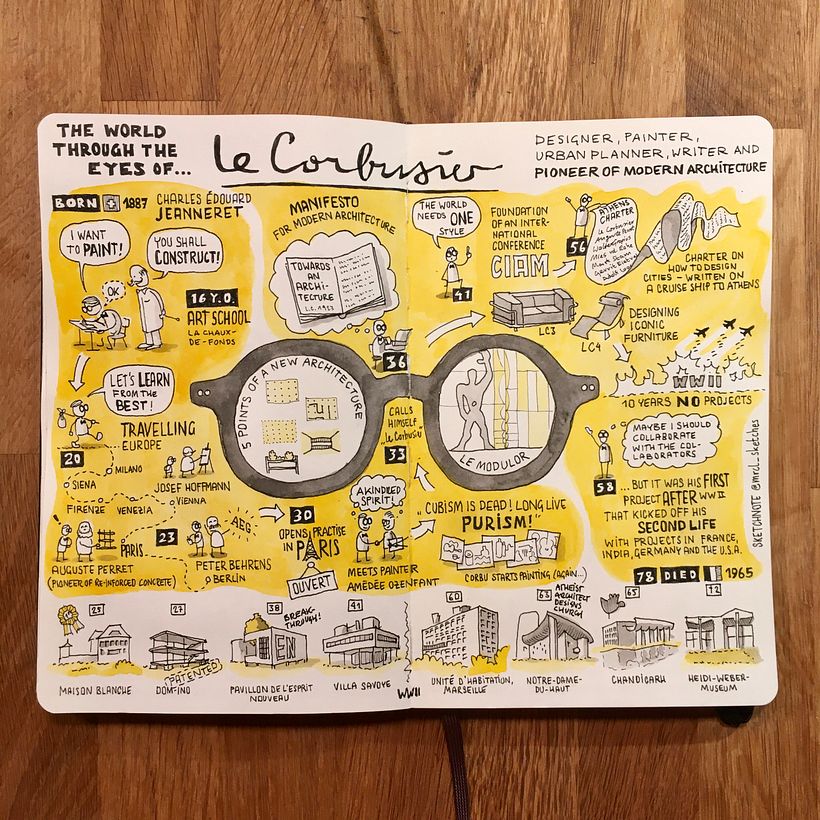 THE WORLD
THROUGH THE
EYES OF...
le Corbusier
DESIGNER, PAINTER,
URBAN PLANNER, WRITER AND
PIONEER OF MODERN ARCHITECTURE
BORN 1887 CHARLES ÉDOUARD
JEANNERET
I WANT
TO PAINT!
YOU SHALL
CONSTRUCT!
OK
16 Y.O.
ART SCHOOL
LA CHAUX-
DE-FONDS
LET'S LEARN
FROM THE
BEST!
TRAVELLING
EUROPE
20
MILANO
SIENA
FIRENZE
VENEZIA
JOSEF HOFFMANN
VIENNA
23
PARIS
AEG
AUGUSTE PERRET
(PIONEER OF RE-INFORCED CONCRETE)
PETER BEHRENS
BERLIN
MANIFESTO
FOR MODERN ARCHITECTURE
TOWARDS
AN
ARCHI-
TECTURE
L.C. 1923
36
5 POINTS OF A NEW ARCHITECTURE
CALLS
HIMSELF
"le Corbusier"
33
30
OPENS PRACTISE
IN PARIS
OUVERT
A KINDRED
SPIRIT!
MEETS PAINTER
AMÉDÉE OZENFANT
THE WORLD
NEEDS ONE
STYLE
41
FOUNDATION
OF AN INTER-
NATIONAL
CONFERENCE
CIAM
56
ATHENS
CHARTER
le Corbusier
CHARTER ON
HOW TO DESIGN
CITIES - WRITTEN ON
A CRUISE SHIP TO ATHENS
LC3
LC4
DESIGNING
ICONIC
FURNITURE
WWII
10 YEARS NO PROJECTS
LE MODULOR
MAYBE I SHOULD
COLLABORATE
WITH THE COL-
LABORATORS
58
...BUT IT WAS HIS FIRST
PROJECT AFTER WWII
THAT KICKED OFF HIS
SECOND LIFE
WITH PROJECTS IN FRANCE,
INDIA, GERMANY AND THE U.S.A.
"CUBISM IS DEAD! LONG LIVE
PURISM!"
CORBU STARTS PAINTING (AGAIN...)
78 DIED 1965
SKETCHNOTE @mrcl_sketches
25
MAISON BLANCHE
27
PATENTED
DOM-INO
38
BREAK-
THROUGH!
EN
PAVILLON DE L'ESPRIT
NOUVEAU
41
VILLA SAVOYE
WWII
60
UNITÉ D'HABITATION,
MARSEILLE
63
ATHEIST
ARCHITECT
DESIGNS
CHURCH
NOTRE-DAME-
DU-HAUT
65
CHANDIGARH
72
HEIDI-WEBER-
MUSEUM